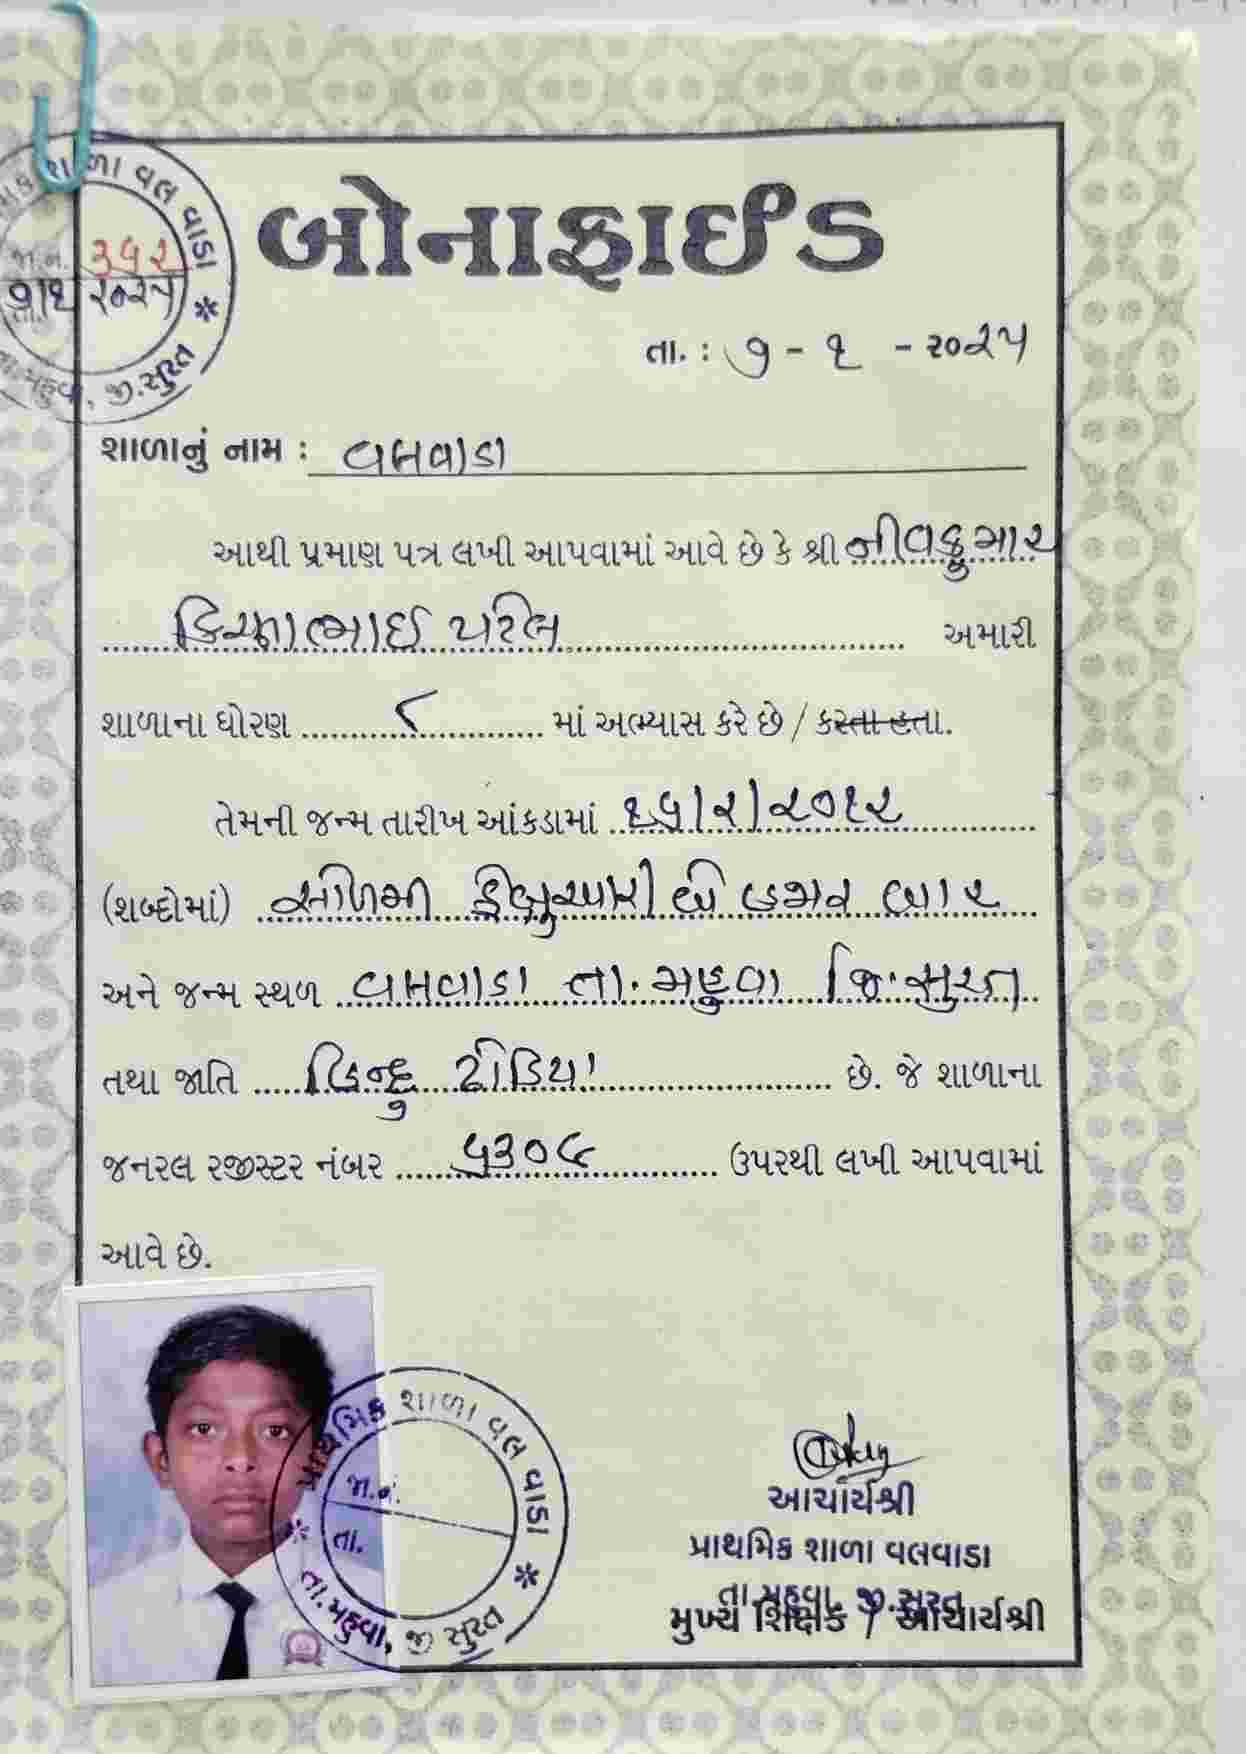 પ્રાથમિક શાળા વલવાડા
જા.નં. ૩૬૨
તા. ૭/૧/૨૦૨૫
તા.મહુવા, જી.સુરત
બોનાફાઈડ
તા. : ૭ - ૧ - ૨૦૨૫
શાળાનું નામ : વલવાડા
આથી પ્રમાણ પત્ર લખી આપવામાં આવે છે કે શ્રી નીવકુમાર
કિરણભાઈ પટેલ અમારી
શાળાના ધોરણ ૮ માં અભ્યાસ કરે છે / કરતા હતા.
તેમની જન્મ તારીખ આંકડામાં ૧૬/૨/૨૦૧૨
(શબ્દોમાં) સોળમી ફેબ્રુઆરી બે હજાર બાર
અને જન્મ સ્થળ વલવાડા તા. મહુવા જિ. સુરત
તથા જાતિ હિન્દુ ઢોડિયા છે. જે શાળાના
જનરલ રજીસ્ટર નંબર ૫૩૦૯ ઉપરથી લખી આપવામાં
આવે છે.
પ્રાથમિક શાળા વલ વાડા
જા.નં.
તા.
તા.મહુવા, જી સુરત
આચાર્યશ્રી
પ્રાથમિક શાળા વલવાડા
તા.મહુવા, જી.સુરત
મુખ્ય શિક્ષક / આચાર્યશ્રી